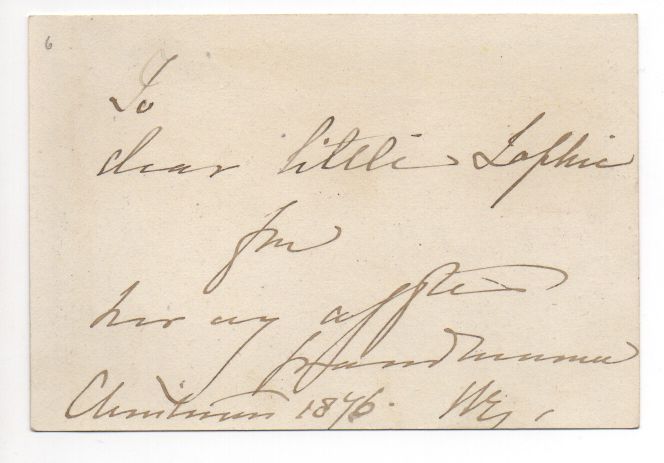 6
To
dear little Sophie
from
her vy affte
Grandmama
Christmas 1876.